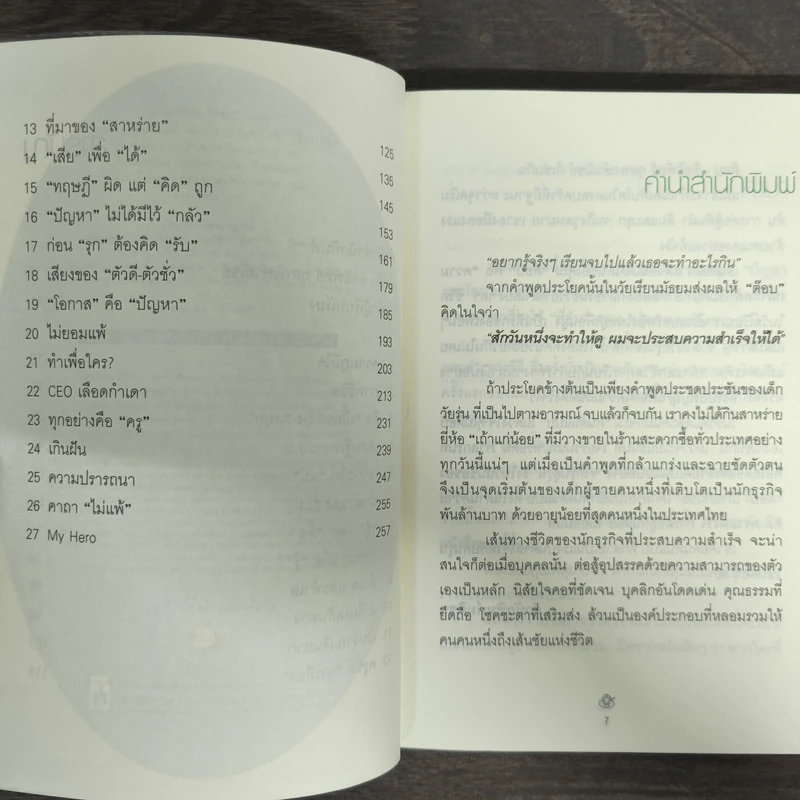 13 ที่มาของ “สาหร่าย” 125
14 “เสีย” เพื่อ “ได้” 135
15 “ทฤษฎี” ผิด แต่ “คิด” ถูก 145
16 “ปัญหา” ไม่ได้มีไว้ “กลัว” 153
17 ก่อน “รุก” ต้องคิด “รับ” 161
18 เสียงของ “ตัวดี-ตัวชั่ว” 179
19 “โอกาส” คือ “ปัญหา” 185
20 ไม่ยอมแพ้ 193
21 ทำเพื่อใคร? 203
22 CEO เลือดกำเดา 213
23 ทุกอย่างคือ “ครู” 231
24 เกินฝัน 239
25 ความปรารถนา 247
26 คาถา “ไม่แพ้” 255
27 My Hero 257
คำนำสำนักพิมพ์
“อยากรู้จริงๆ เรียนจบไปแล้วเธอจะทำอะไรกิน”
จากคำพูดประโยคนั้นในวัยเรียนมัธยมส่งผลให้ “ต๊อบ”
คิดในใจว่า
“สักวันหนึ่งจะทำให้ดู ผมจะประสบความสำเร็จให้ได้”
ถ้าประโยคข้างต้นเป็นเพียงคำพูดประชดประชันของเด็ก
วัยรุ่น ที่เป็นไปตามอารมณ์ จบแล้วก็จบกัน เราคงไม่ได้กินสาหร่าย
ยี่ห้อ “เถ้าแก่น้อย” ที่มีวางขายในร้านสะดวกซื้อทั่วประเทศอย่าง
ทุกวันนี้แน่ๆ แต่เมื่อเป็นคำพูดที่กล้าแกร่งและฉายชัดตัวตน
จึงเป็นจุดเริ่มต้นของเด็กผู้ชายคนหนึ่งที่เติบโตเป็นนักธุรกิจ
พันล้านบาท ด้วยอายุน้อยที่สุดคนหนึ่งในประเทศไทย
เส้นทางชีวิตของนักธุรกิจที่ประสบความสำเร็จ จะน่า
สนใจก็ต่อเมื่อบุคคลนั้น ต่อสู้อุปสรรคด้วยความสามารถของตัว
เองเป็นหลัก นิสัยใจคอที่ชัดเจน บุคลิกอันโดดเด่น คุณธรรมที่
ยึดถือ โชคชะตาที่เสริมส่ง ล้วนเป็นองค์ประกอบที่หลอมรวมให้
คนคนหนึ่งถึงเส้นชัยแห่งชีวิต
7